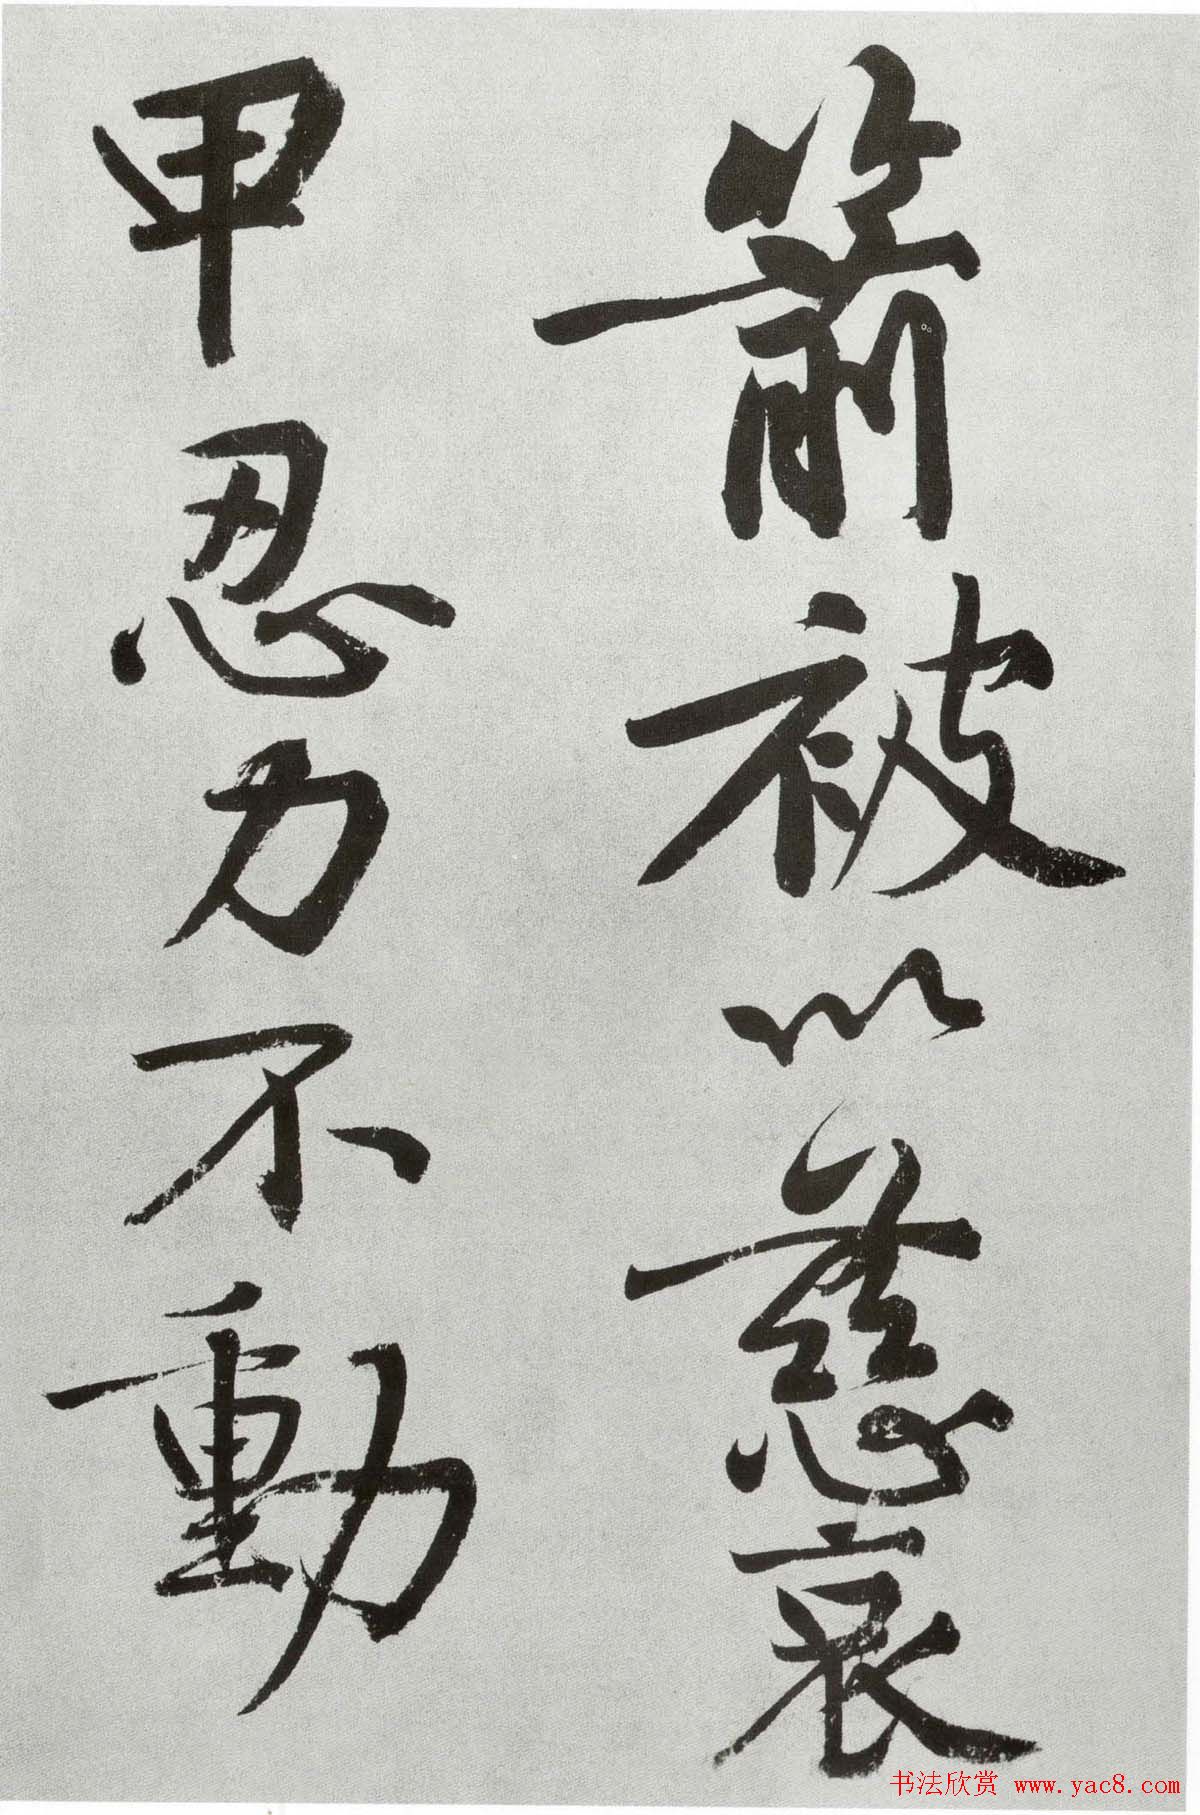 箭被以慈哀
甲忍力不動
书法欣赏 www.yac8.com